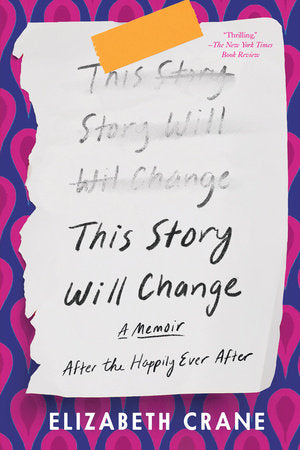 "Thrilling."
—The New York Times
Book Review
This Story
Story Will
Wil Change
This Story
Will Change
A Memoir
After the Happily Ever After
ELIZABETH CRANE